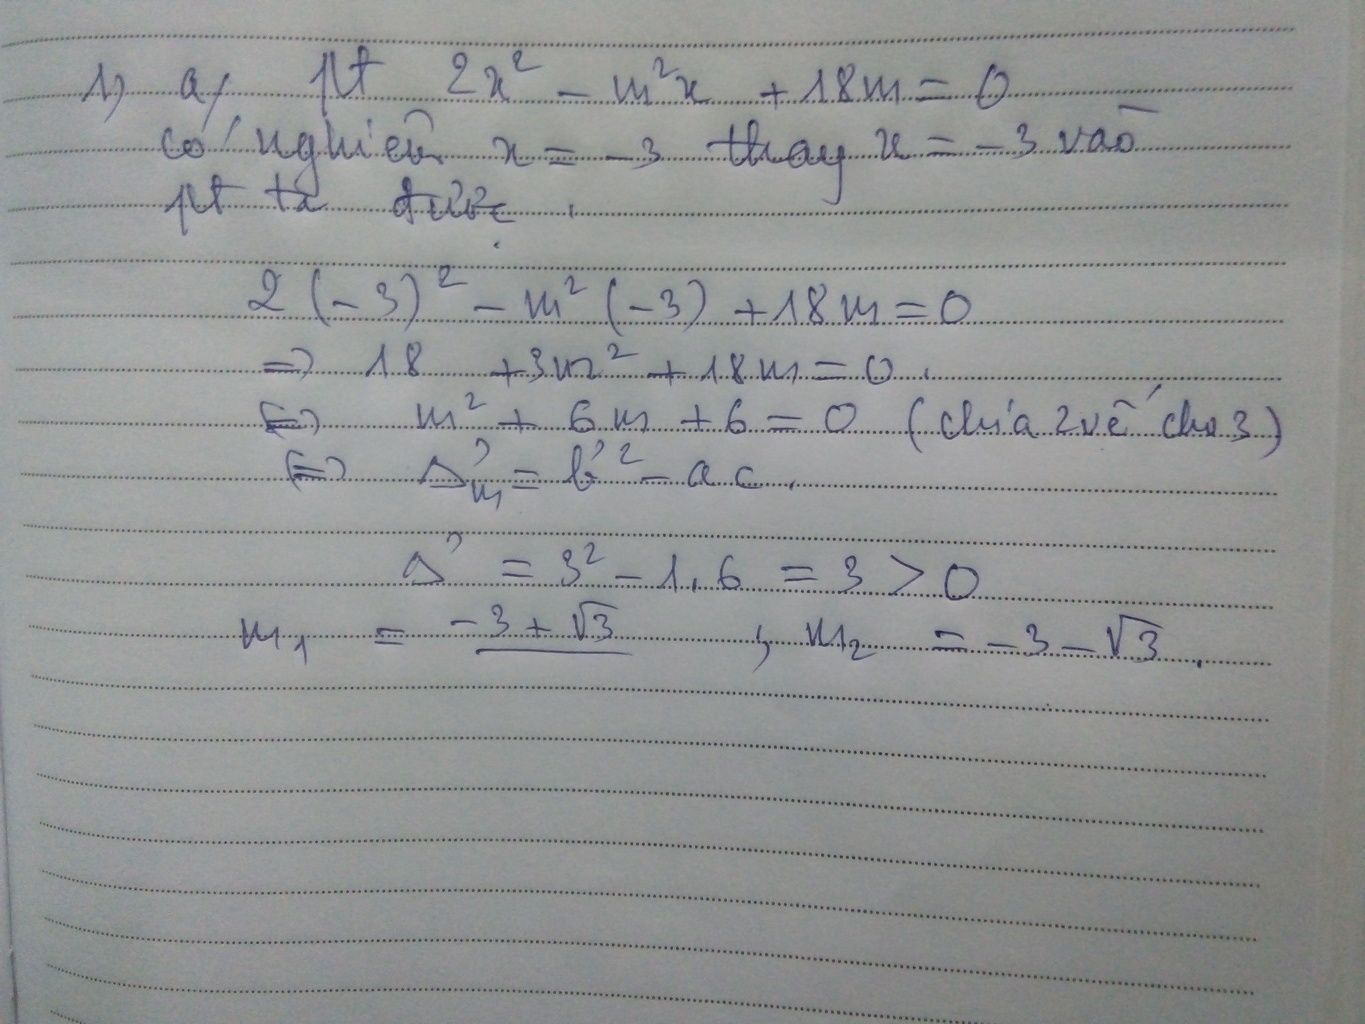 1) a, pt 2x² - m²x + 18m = 0
có nghiệm x = -3 thay x = -3 vào
pt ta được
2(-3)² - m²(-3) + 18m = 0
=> 18 + 3m² + 18m = 0.
<=> m² + 6m + 6 = 0 (chia 2 vế cho 3)
<=> Δ'm = b'² - ac.
Δ' = 3² - 1.6 = 3 > 0
m₁ = -3 + √3 ; m₂ = -3 - √3.